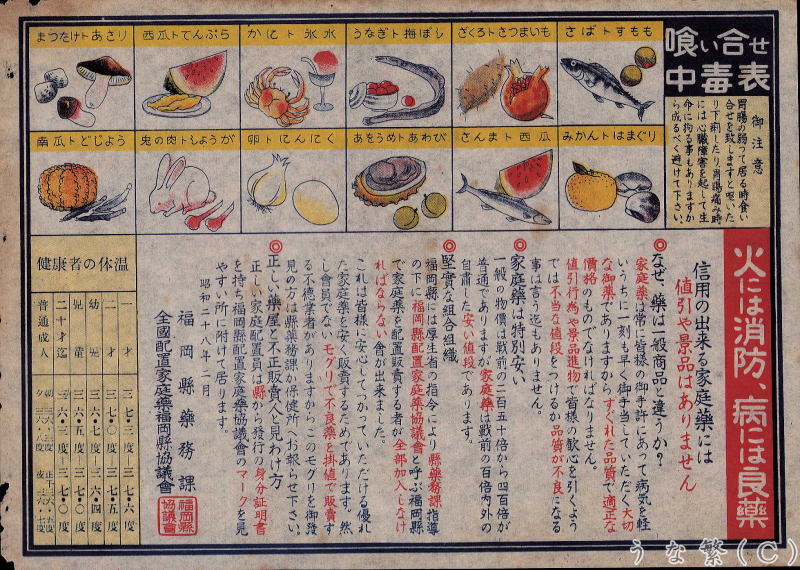 喰い合せ
中毒表
御注意
胃腸の弱って居る時食い
合せを致しますと嘔いた
り下痢したり胃腸痛み時
には心臓障害を起して生
命に拘る事もありますか
ら成るべく避けて下さい。
さばトすもも
ざくろトさつまいも
うなぎト梅ぼし
かにト氷水
西瓜トてんぷら
まつたけトあさり
みかんトはまぐり
さんまト西瓜
あをうめトあわび
卵トにんにく
兎の肉トしょうが
南瓜トどじょう
火には消防、病には良藥
信用の出来る家庭藥には
値引や景品はありません
◎なぜ、藥は一般商品と違うか?
家庭藥は常に皆様の御手許にあって病気を軽
いうちに一刻も早く御手当していただく大切
な御藥でありますからすぐれた品質で適正な
価格のものでなければなりません。
値引行為や景品進物で皆様の歓心を引くよう
では不当な値段をつけるか品質が不良になる
事は言う迄もありません。
◎家庭藥は特別安い
一般の物價は戦前の二百五十倍から四百倍が
普通でありますが家庭藥は戦前の百倍内外の
自粛した安い値段であります。
◎堅實な組合組織
福岡縣には厚生省の指令により縣藥務課指導
の下に福岡縣配置家庭藥協議會と呼ぶ福岡縣
で家庭藥を配置販賣する者が全部加入しなけ
ればならない會が出来ました。
これは皆様に安心してつかっていただける優れ
た家庭藥を安く販賣するためであります。然
し會員でないモグリで不良藥を掛値で販賣す
る不徳業者がありますからこのモグリを御發
見の方は縣藥務課か保健所へお報らせ下さい。
◎正しい藥屋と不正販賣人と見わけ方
正しい家庭配置員は縣から發行の身分証明書
を持ち福岡縣配置家庭藥協議會のマークを見
やすい所に附けて居ります。
昭和二十八年二月
福岡縣藥務課
全國配置家庭藥福岡縣協議會
福岡縣
協議會
健康者の体温
一才 三七・六度
二才 三七・五度
幼児 三七・三度 三六・四度
児童 三六・五度 三七・〇度
二十才迄 三六・〇度 三七・〇度
普通成人
うな繁(C)